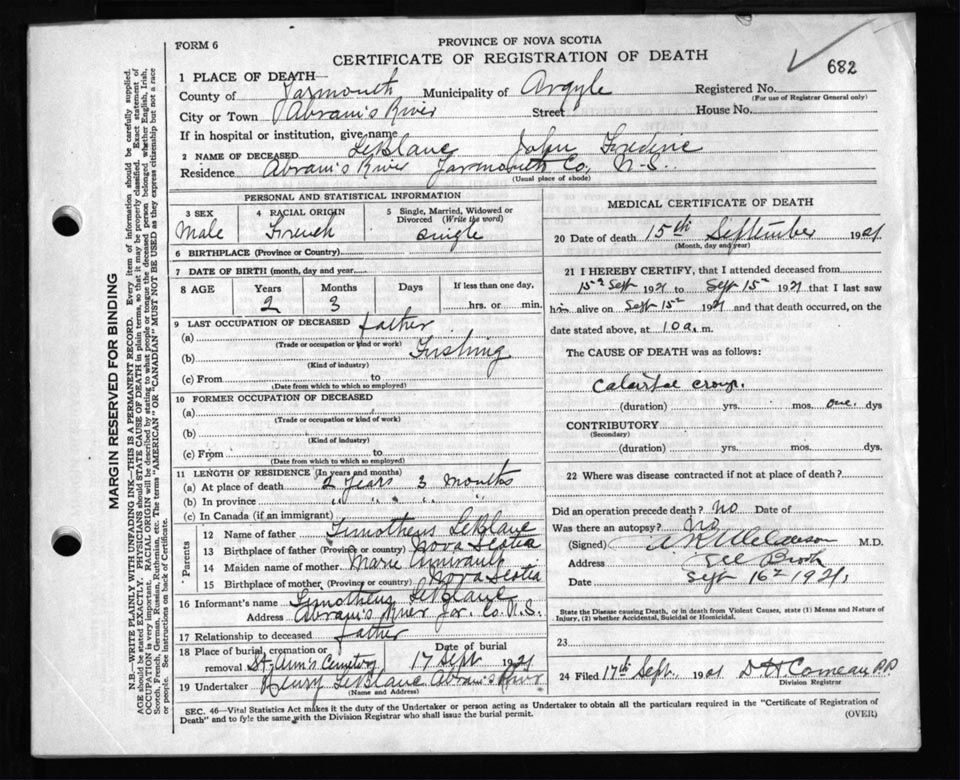 FORM 6
PROVINCE OF NOVA SCOTIA
CERTIFICATE OF REGISTRATION OF DEATH
682
1 PLACE OF DEATH—
County of Yarmouth Municipality of Argyle Registered No.
(For use of Registrar General only)
City or Town Abram's River Street House No.
If in hospital or institution, give name
2 NAME OF DECEASED LeBlanc John
Residence Abram's River Yarmouth Co, N.S.
(Usual place of abode)
PERSONAL AND STATISTICAL INFORMATION
3 SEX 4 RACIAL ORIGIN 5 Single, Married, Widowed or Divorced (Write the word)
Male French single
6 BIRTHPLACE (Province or Country)
7 DATE OF BIRTH (month, day and year
8 AGE Years Months Days If less than one day,
2 3 hrs. or min.
9 LAST OCCUPATION OF DECEASED father
(a)
(Trade or occupation or kind of work)
(b) Fishing
(Kind of industry)
(c) From to
(Date from which to which so employed)
10 FORMER OCCUPATION OF DECEASED
(a)
(Trade or occupation or kind of work)
(b)
(Kind of industry)
(c) From to
(Date from which to which so employed)
11 LENGTH OF RESIDENCE (In years and months)
(a) At place of death 2 Years 3 Months
(b) In province " " " "
(c) In Canada (if an immigrant)
Parents
12 Name of father Timotheus LeBlanc
13 Birthplace of father (Province or country) Nova Scotia
14 Maiden name of mother Marie Amirault
15 Birthplace of mother (Province or country) Nova Scotia
16 Informant's name Timotheus LeBlanc
Address Abram's River Yar. Co. N.S.
17 Relationship to deceased father
18 Place of burial, cremation or removal St Ann's Cemetery Date of burial 17 Sept 1921
19 Undertaker Henry LeBlanc Abram's River
(Name and Address)
MEDICAL CERTIFICATE OF DEATH
20 Date of death 15th September 1921
(Month, day and year)
21 I HEREBY CERTIFY, that I attended deceased from
15th Sept 1921 to Sept 15th 1921 that I last saw
him alive on Sept 15th 1921 and that death occurred, on the
date stated above, at 10 a. m.
The CAUSE OF DEATH was as follows:
croup.
(duration) yrs. mos. one dys
CONTRIBUTORY
(Secondary)
(duration) yrs. mos. dys.
22 Where was disease contracted if not at place of death?
Did an operation precede death? No Date of
Was there an autopsy? No
(Signed) M.D.
Address Eel Brook
Date Sept 16th 1921
State the Disease causing Death, or in death from Violent Causes, state (1) Means and Nature of
Injury, (2) whether Accidental, Suicidal or Homicidal.
23
24 Filed 17th Sept. 1921 D H Comeau P.P.
Division Registrar
SEC. 46—Vital Statistics Act makes it the duty of the Undertaker or person acting as Undertaker to obtain all the particulars required in the "Certificate of Registration of
Death" and to fyle the same with the Division Registrar who shall issue the burial permit.
(OVER)
MARGIN RESERVED FOR BINDING
N.B.—WRITE PLAINLY WITH UNFADING INK—THIS IS A PERMANENT RECORD. Every item of information should be carefully supplied.
AGE should be stated EXACTLY. PHYSICIANS should STATE CAUSE OF DEATH in plain terms, so that it may be properly classified. Exact statement of
OCCUPATION is very important. RACIAL ORIGIN will be described by stating to what people or tongue the deceased person belonged whether English, Irish,
Scotch, French, German, Russian, Ruthenian, etc. The terms "AMERICAN" OR "CANADIAN" MUST NOT BE USED as they express citizenship but not a race
or people. See instructions on back of Certificate.